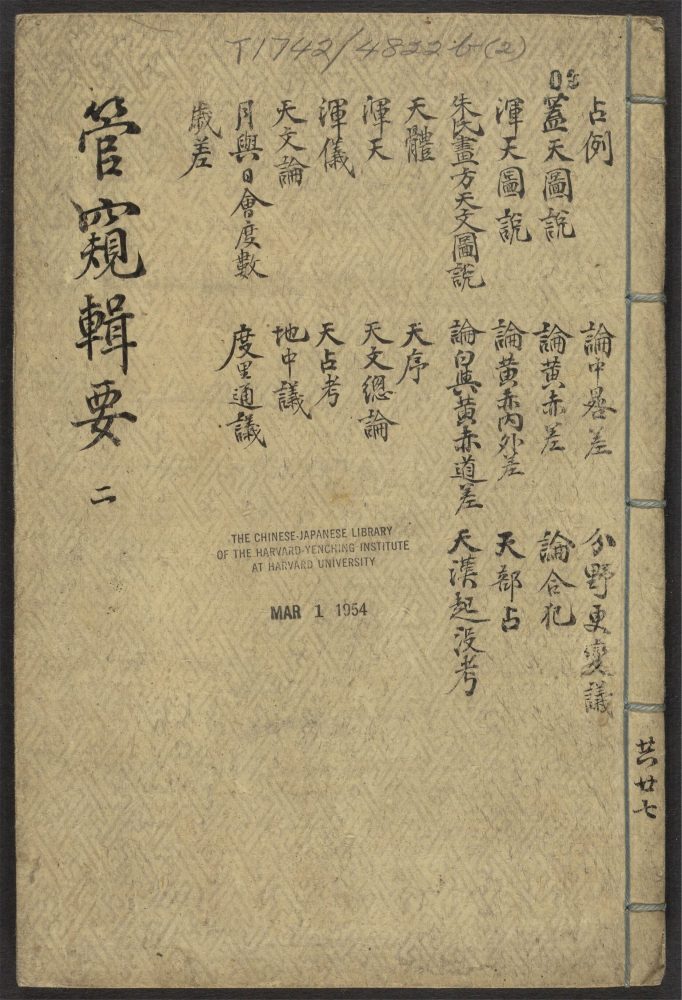 T1742/4822b(2)
占例
蓋天圖說
渾天圖說
朱氏畫方天文圖說
天體
渾天
渾儀
天文論
月與日會度數
歲差
論中晷差
論黃赤差
論黃赤內外差
論白與黃赤道差
天序
天文總論
天占考
地中議
度里通議
分野更變議
論合犯
天部占
天漢起沒考
管窺輯要 二
THE CHINESE-JAPANESE LIBRARY
OF THE HARVARD-YENCHING INSTITUTE
AT HARVARD UNIVERSITY
MAR 1 1954
共廿七